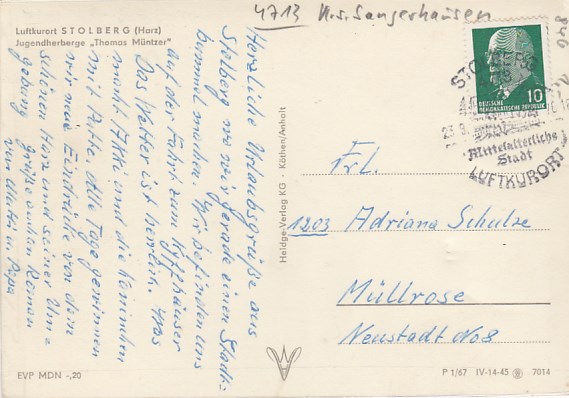 4713 K.s. Sangerhausen
Luftkurort STOLBERG (Harz)
Jugendherberge „Thomas Müntzer"
Herzliche Urlaubsgrüße aus
Stolberg wo wir gerade einen Stadt=
bummel machen. Wir befinden uns
auf der Fahrt zum Kyffhäuser
Das Wetter ist herrlich. Was
macht und die Kaninchen
mit Pethe. Alle Tage gewinnen
wir neue Eindrücke von dem
schönen Harz und seiner Um=
gebung grüße auch an Roman
von Mutti u. Papa
Heldge-Verlag KG · Köthen/Anhalt
STOLBERG
10
DEUTSCHE
DEMOKRATISCHE REPUBLIK
23.9.
Mittelalterliche
Stadt
LUFTKURORT
Frl.
1203 Adriana Schulze
Müllrose
Neustadt No 8
EVP MDN -,20
P 1/67 IV-14-45 7014